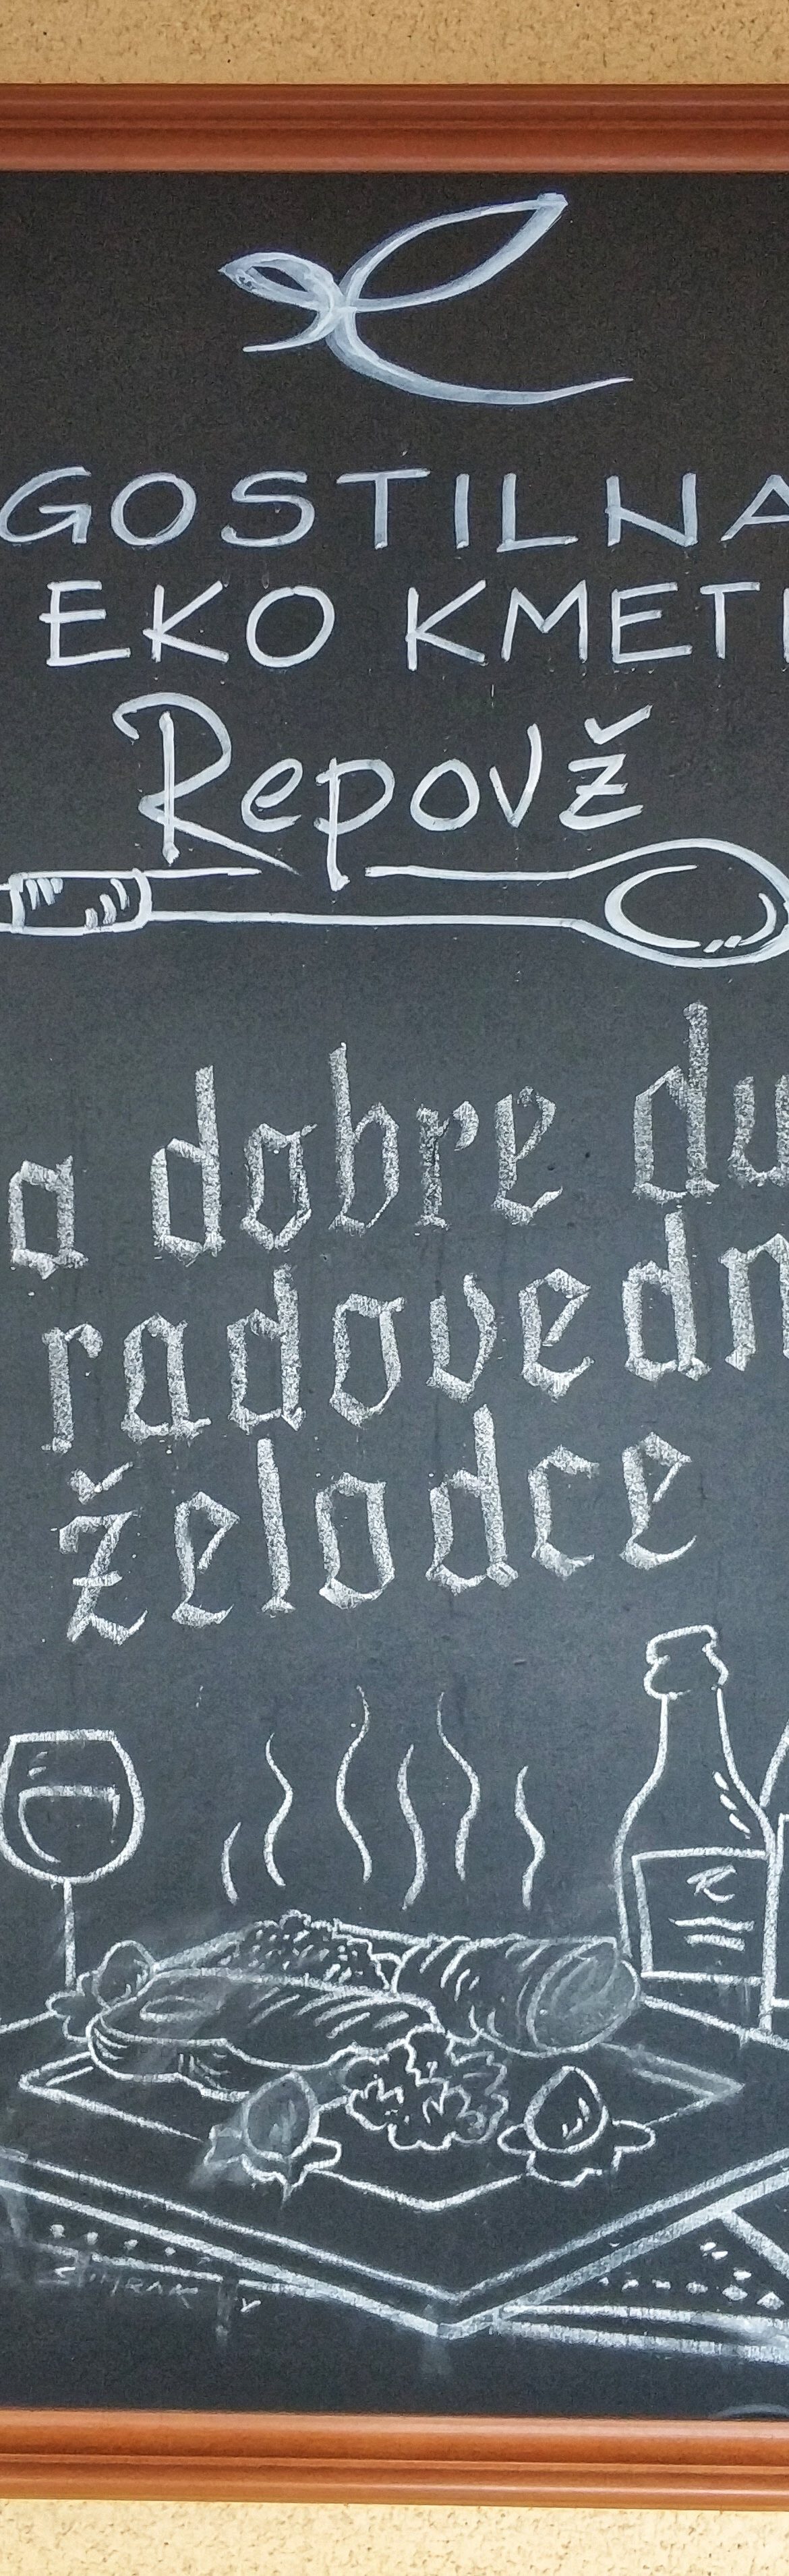 GOSTILNA
EKO KMETI
Repovž
a dobre du
radovedn
želodce
R